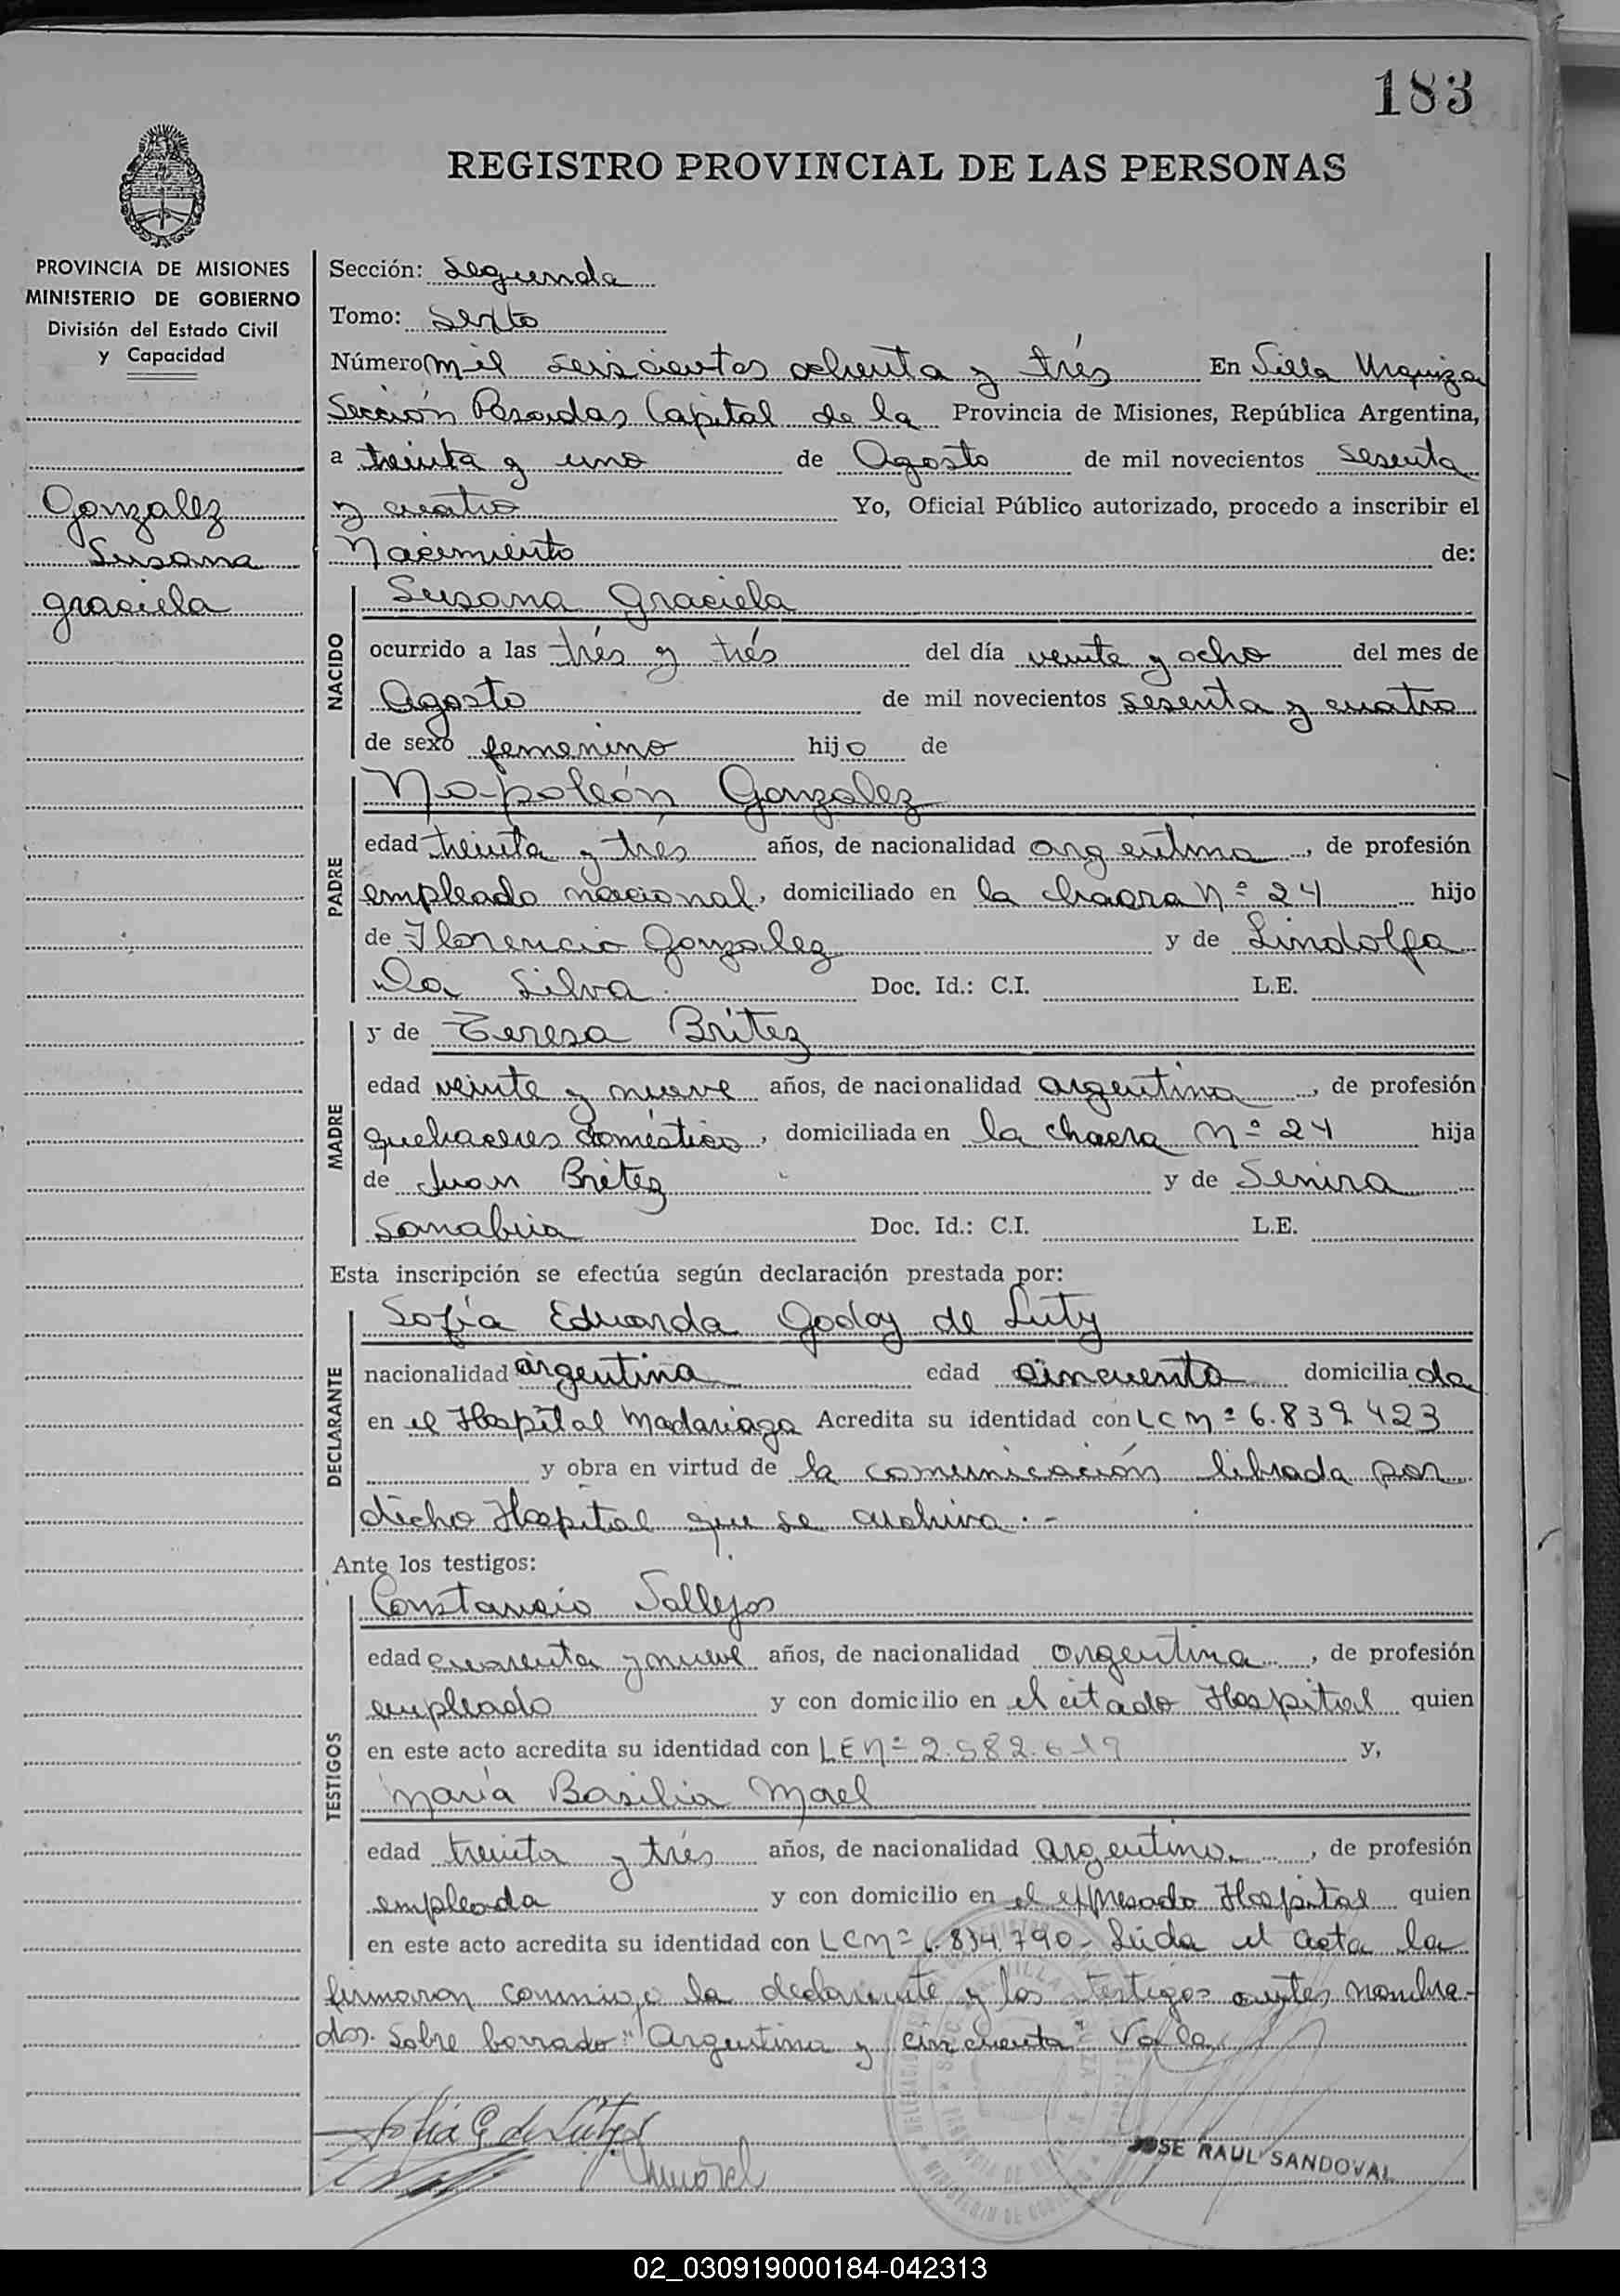 183
REGISTRO PROVINCIAL DE LAS PERSONAS
PROVINCIA DE MISIONES
MINISTERIO DE GOBIERNO
División del Estado Civil
y Capacidad
Gonzalez
Susana
Graciela
Sección: Segunda
Tomo: Sexto
Número mil seiscientos ochenta y trés En Villa Urquiza
Sección Posadas Capital de la Provincia de Misiones, República Argentina,
a treinta y uno de Agosto de mil novecientos sesenta
y cuatro Yo, Oficial Público autorizado, procedo a inscribir el
Nacimiento de:
NACIDO
Susana Graciela
ocurrido a las trés y trés del día veinte y ocho del mes de
Agosto de mil novecientos sesenta y cuatro
de sexo femenino hijo de
PADRE
Napoleón Gonzalez
edad treinta y trés años, de nacionalidad argentina, de profesión
empleado nacional, domiciliado en la chacra Nº 24 hijo
de Florencio Gonzalez y de Lindolfa
Da Silva. Doc. Id.: C.I. L.E.
MADRE
y de Teresa Britez
edad veinte y nueve años, de nacionalidad argentina, de profesión
quehaceres domésticos, domiciliada en la chacra Nº 24 hija
de Juan Britez y de Senira
Sanabria Doc. Id.: C.I. L.E.
Esta inscripción se efectúa según declaración prestada por:
DECLARANTE
Sofía Eduarda Godoy de Luty
nacionalidad argentina edad cincuenta domiciliada
en el Hospital Madariaga Acredita su identidad con LC Nº 6.839.423
y obra en virtud de la comunicación librada por
dicho Hospital que se archiva.-
Ante los testigos:
TESTIGOS
Constancio Vallejos
edad cuarenta y nueve años, de nacionalidad argentina, de profesión
empleado y con domicilio en el citado Hospital quien
en este acto acredita su identidad con LE Nº 2.582.619 y,
María Basilia Morel
edad treinta y trés años, de nacionalidad argentina, de profesión
empleada y con domicilio en el expresado Hospital quien
en este acto acredita su identidad con LC Nº 6.834.790- Leída el acta la
firmaron conmigo la declarante y los testigos antes nombra-
dos. Sobre borrado "Argentina y cincuenta" Vale.
Sofia G de Luty
Morel
JOSE RAUL SANDOVAL
02_030919000184-042313